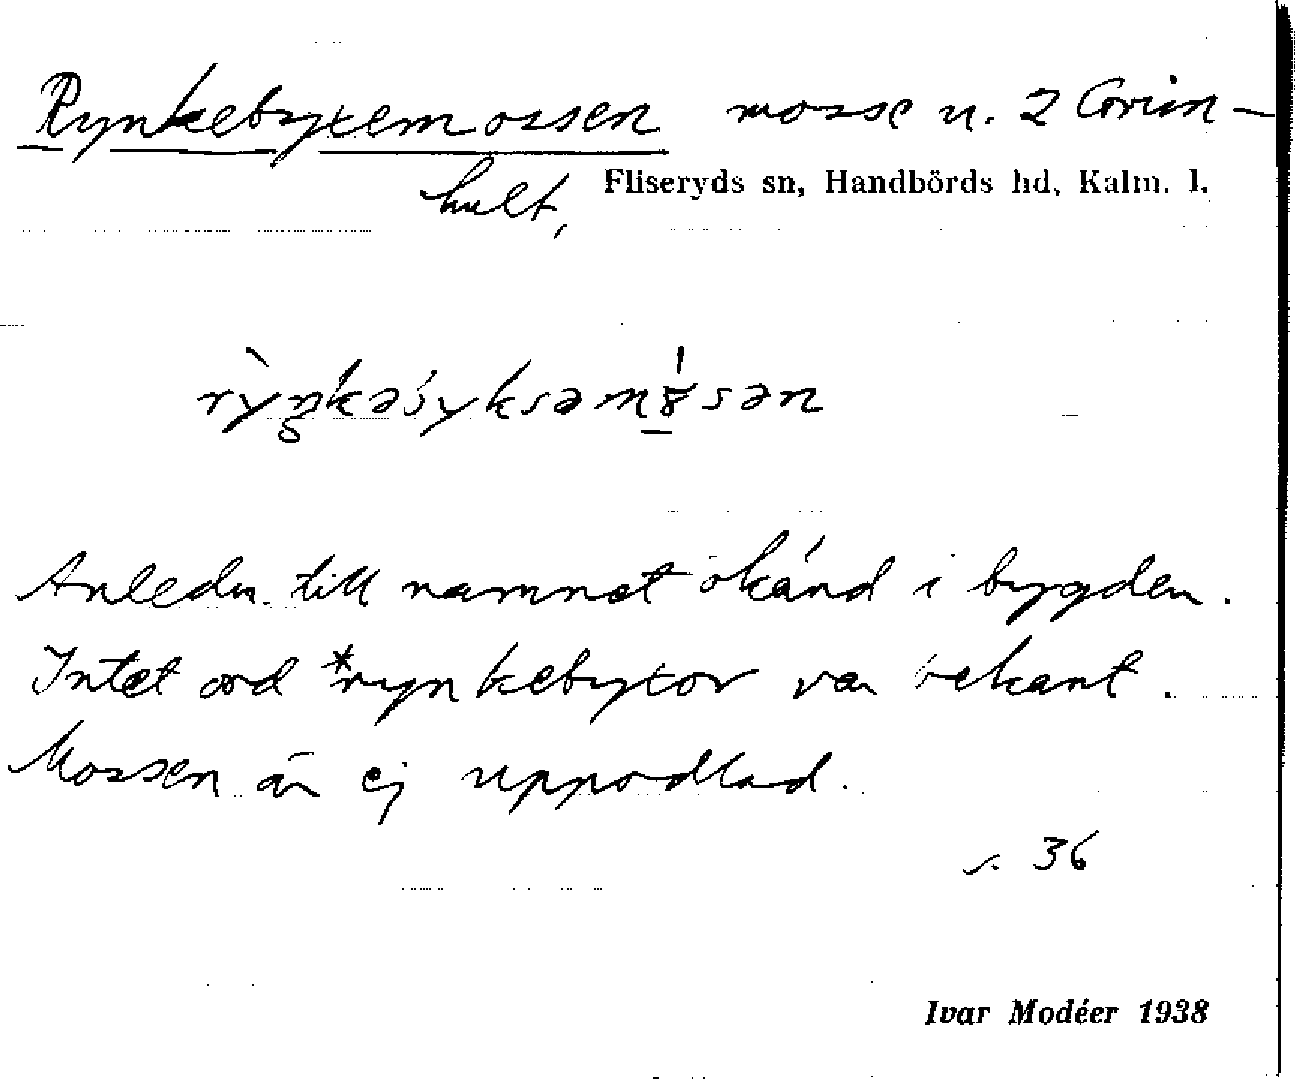 Rynkebyxemossen mosse u. 2 Grim-
hult, Fliseryds sn, Handbörds hd, Kalm. l.
Anledn. till namnet okänd i bygden.
Intet ord *rynkebyxor var bekant.
Mossen är ej uppodlad.
s. 36
Ivar Modéer 1938